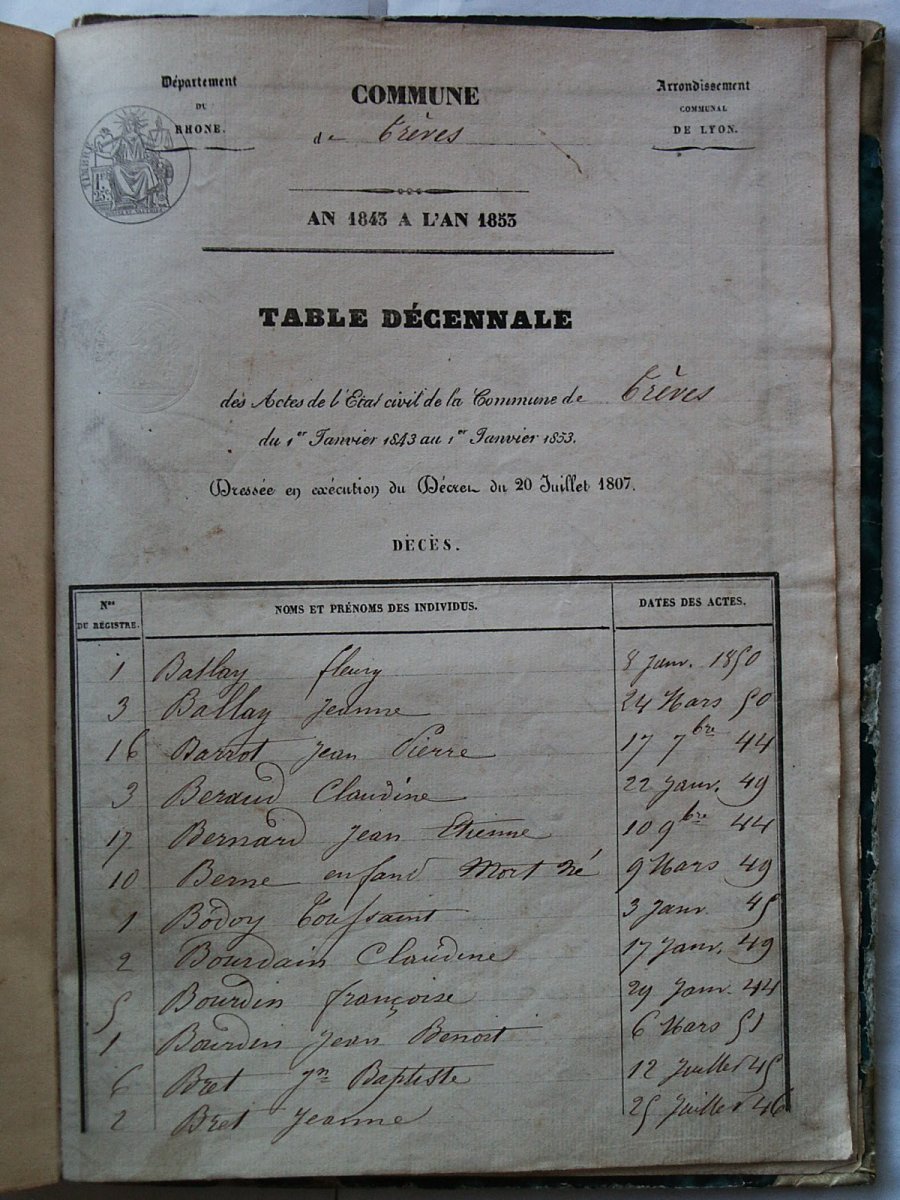 Département
DU
RHONE.
COMMUNE
de Trèves
Arrondissement
COMMUNAL
DE LYON.
TIMBRE
1F
25C
AN 1843 A L'AN 1853
TABLE DÉCENNALE
des Actes de l'Etat civil de la Commune de Trèves
du 1er Janvier 1843 au 1er Janvier 1853.
Dressée en exécution du Décret du 20 Juillet 1807.
DÉCÈS.
Nos DU RÉGISTRE. NOMS ET PRÉNOMS DES INDIVIDUS. DATES DES ACTES.
1 Ballay fleury 8 Janv. 1850
3 Ballay Jeanne 24 Mars 50
16 Barrot Jean Pierre 17 7bre 44
3 Beraud Claudine 22 Janv. 49
17 Bernard Jean Etienne 10 9bre 44
10 Berne enfand Mort Né 9 Mars 49
1 Bodoy Toussaint 3 Janv. 45
2 Bourdain Claudine 17 Janv. 49
5 Bourdin françoise 29 Janv. 44
1 Bourdin Jean Benoit 6 Mars 51
6 Bret Jn Baptiste 12 Juillet 45
2 Bret Jeanne 25 Juillet 46